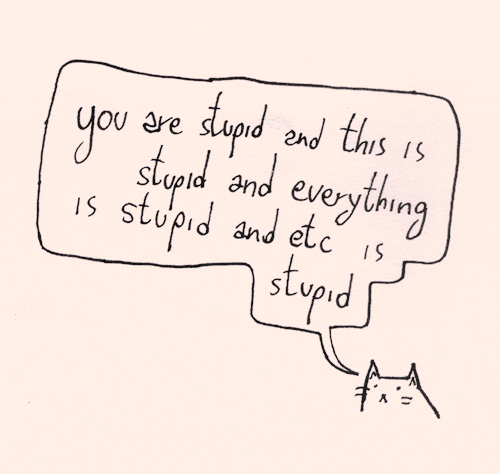 you are stupid and this is
stupid and everything
is stupid and etc is
stupid